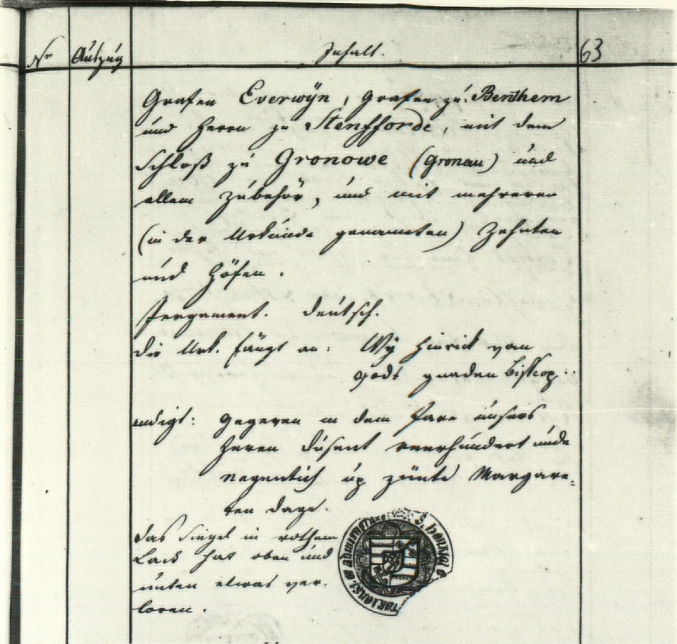 Nr Auszug Inhalt. 63
Grafen Everwÿn, Grafen zu Benthem
und Herrn zu Stenfforde, mit dem
Schloß zu Gronowe (Gronau) und
allem Zubehör, und mit mehreren
(in der Urkunde genannten) Zehnten
und Höfen.
Pergament. deutsch.
Die Urk. fängt an: Wÿ Hinrick van
gods gnaden Biscop
endigt: gegeven in dem Jare unsers
Heren dusent veerhundert unde
negentich up sünte Margare-
ten dage.
Das Siegel in rothem
Lack hat oben und
unten etwas ver-
loren.